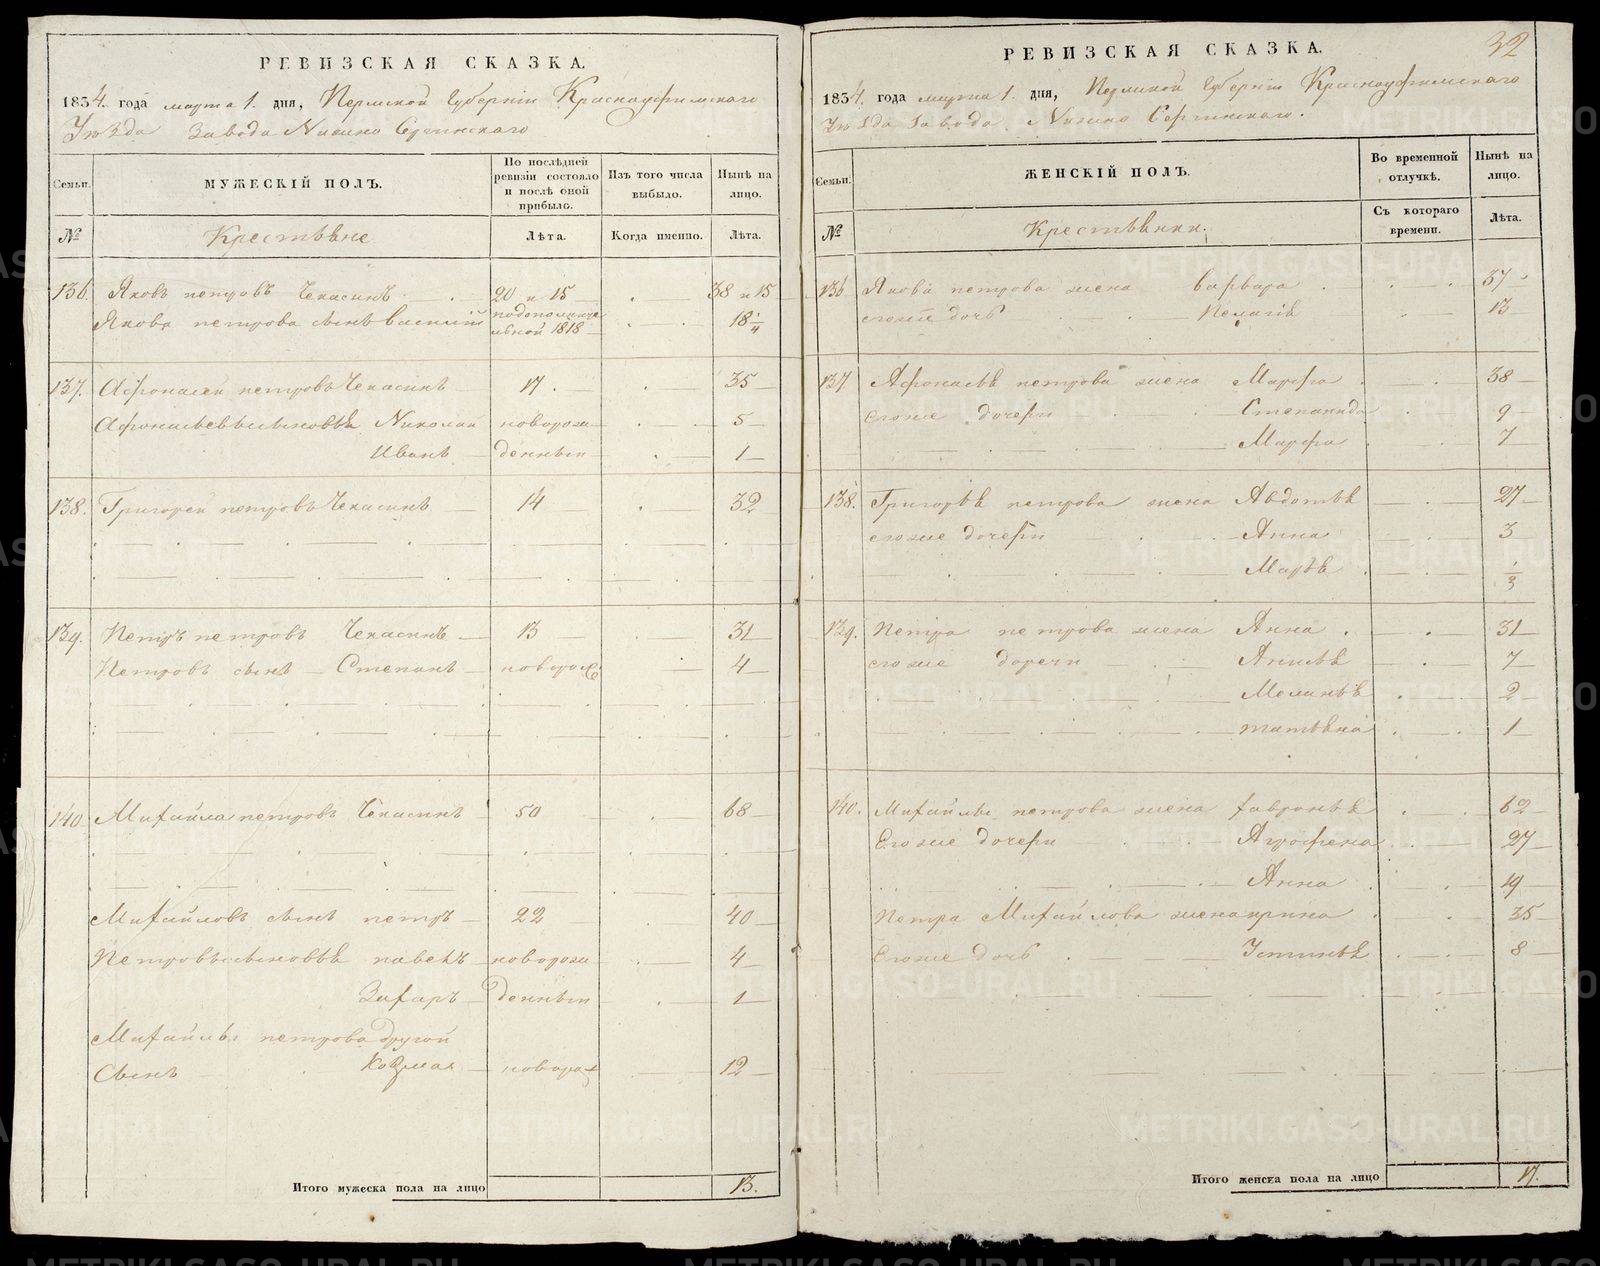 РЕВИЗСКАЯ СКАЗКА.
1834. года марта 1. дня, Пермской Губерніи Красноуфимскаго
Уѣзда Завода Нижно Сергинскаго
Семьи.
МУЖЕСКІЙ ПОЛЪ.
По послѣдней ревизіи состояло и послѣ оной прибыло.
Изъ того числа выбыло.
Нынѣ на лицо.
№
Крестьяне
Лѣта.
Когда именно.
Лѣта.
136. Яковъ петровъ Чекасинъ 20 и 15 38 и 15
Якова петрова сынъ Василій 1818 18 1/4
137. Афонасей петровъ Чекасинъ 17. 35
Николай новорож 5
Иванъ денныи 1
138. Григорей петровъ Чекасинъ 14 32
139. Петръ петровъ Чекасинъ 13 31
Петровъ сынъ Степанъ новорож 4
140 Михайла петровъ Чекасинъ 50 68
Михайловъ сынъ петръ 22 40
Петровы сыновьѣ павелъ новорож 4
Захаръ денныи 1
Михайлы петрова другой
Сынъ Козма новорож 12
Итого мужеска пола на лицо 13.
32
РЕВИЗСКАЯ СКАЗКА.
1834. года марта 1. дня, Пермской Губерніи Красноуфимскаго
Уѣзда Завода Нижно Сергинскаго.
Семьи.
ЖЕНСКІЙ ПОЛЪ.
Во временной отлучкѣ.
Нынѣ на лицо.
№
Крестьянки.
Съ котораго времени.
Лѣта.
136 Якова петрова жена варвара 37
егоже дочь Пелагіѣ 13
137 Афонасьѣ петрова жена Марфа 38
егоже дочери Степанида 9
Марфа 7
138. Григорьѣ петрова жена Авдотьѣ 27
егоже дочери Анна 3
Марьѣ 1/3
139. Петра петрова жена Анна 31
егоже дочери Анисьѣ 7
Меланьѣ 2
татьѣна 1
140. Михайлы петрова жена февроньѣ 62
Егоже дочери Агрофена 27
Анна 19
Петра Михайлова жена ирина 35
Егоже дочь Устиньѣ 8
Итого женска пола на лицо 17.
METRIKI.GASO-URAL.RU